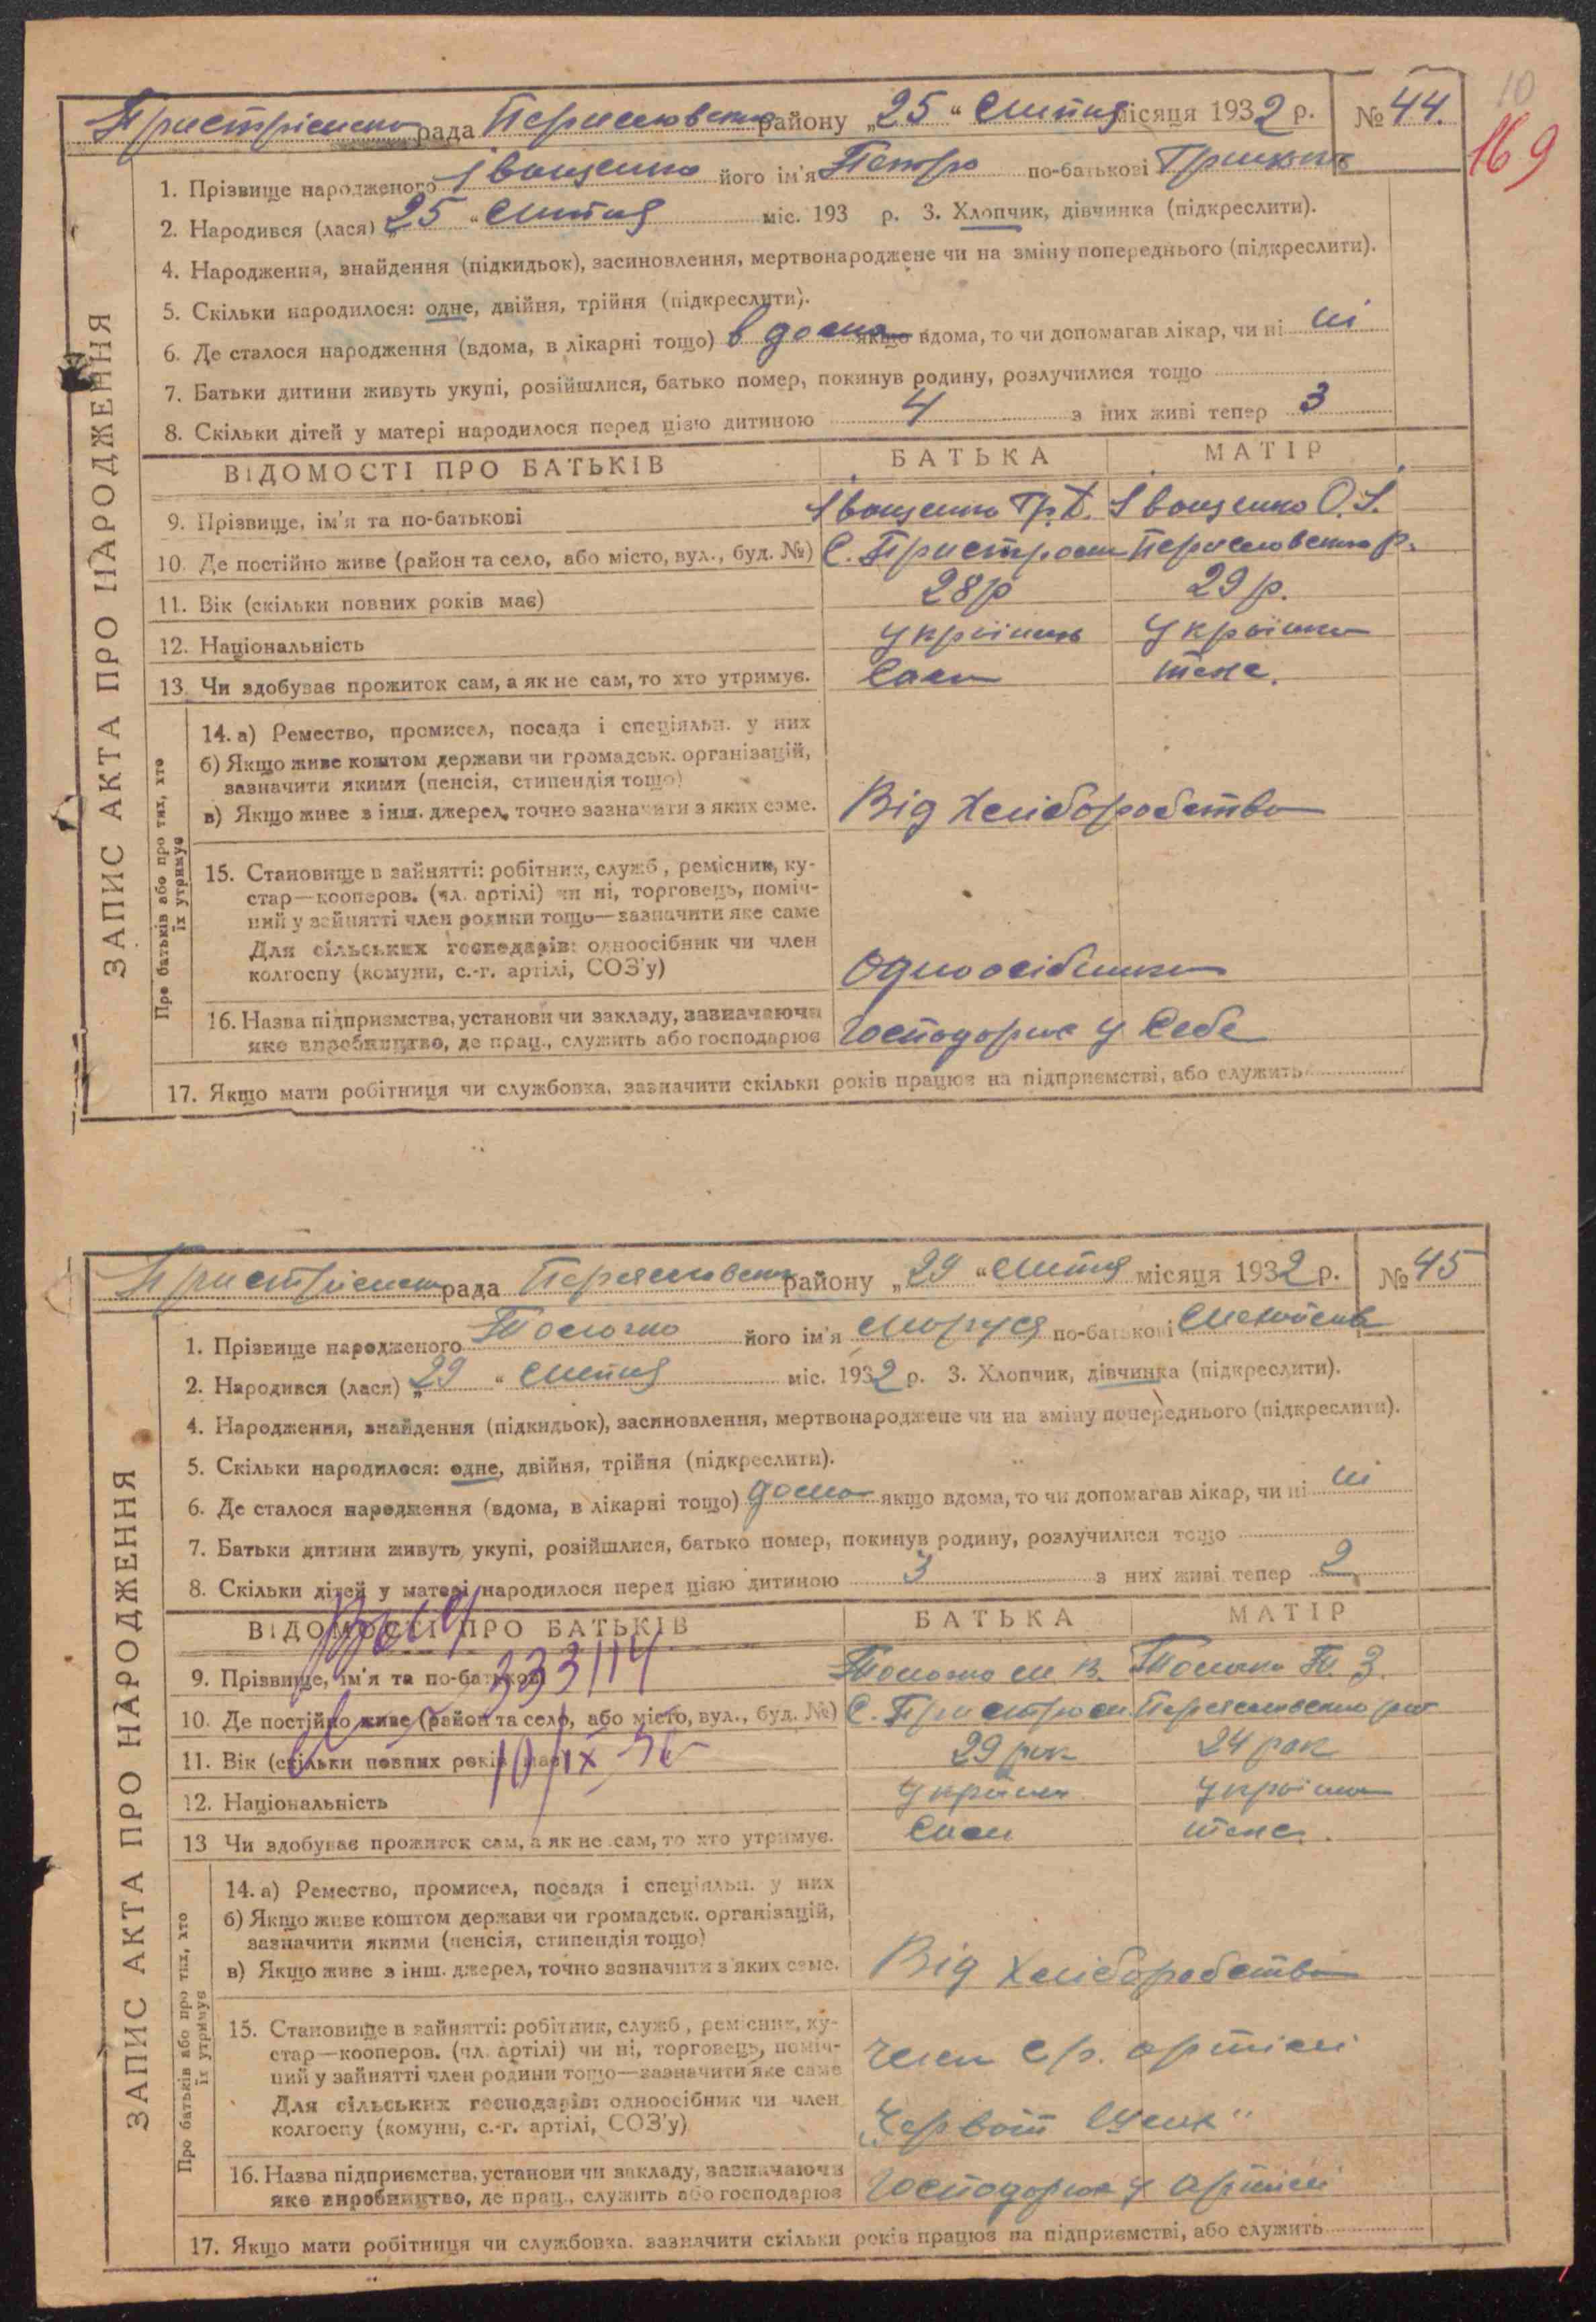 10
169
Пристрімська рада Переяславського району „25“ Липня місяця 1932 р. № 44.
1. Прізвище народженого Іващенко його ім'я Петро по-батькові
2. Народився (лася) „25“ Липня міс. 193 р. 3. Хлопчик, дівчинка (підкреслити).
4. Народження, знайдення (підкидьок), засиновлення, мертвонароджене чи на зміну попереднього (підкреслити).
5. Скільки народилося: одне, двійня, трійня (підкреслити).
6. Де сталося народження (вдома, в лікарні тощо) в дома якщо вдома, то чи допомагав лікар, чи ні ні
7. Батьки дитини живуть укупі, розійшлися, батько помер, покинув родину, розлучилися тощо
8. Скільки дітей у матері народилося перед цією дитиною 4 з них живі тепер 3
ВІДОМОСТІ ПРО БАТЬКІВ БАТЬКА МАТІР
9. Прізвище, ім'я та по-батькові Іващенко Гр. Д. Іващенко О. І.
10. Де постійно живе (район та село, або місто, вул., буд. №) С. Пристроми Переяславського р.
11. Вік (скільки повних років має) 28 р 29 р.
12. Національність Українець Українка
13. Чи здобуває прожиток сам, а як не сам, то хто утримує. Сам теж.
14. а) Ремество, промисел, посада і спеціяльн. у них
б) Якщо живе коштом держави чи громадськ. організацій,
зазначити якими (пенсія, стипендія тощо)
в) Якщо живе з інш. джерел, точно зазначити з яких саме. Від Хліборобства
15. Становище в зайнятті: робітник, служб., ремісник, ку-
стар—кооперов. (чл. артілі) чи ні, торговець, поміч-
ний у зайнятті член родини тощо—зазначити яке саме
Для сільських господарів: одноосібник чи член
колгоспу (комуни, с.-г. артілі, СОЗ'у) Одноосібники
16. Назва підприємства, установи чи закладу, зазначаючи
яке виробництво, де прац., служить або господарює Господарює у Себе
17. Якщо мати робітниця чи службовка, зазначити скільки років працює на підприємстві, або служить
Про батьків або про тих, хто їх утримує
ЗАПИС АКТА ПРО НАРОДЖЕННЯ
Пристрімська рада Переяславського району „29“ Липня місяця 1932 р. № 45
1. Прізвище народженого його ім'я Маруся по-батькові
2. Народився (лася) „29“ Липня міс. 1932 р. 3. Хлопчик, дівчинка (підкреслити).
4. Народження, знайдення (підкидьок), засиновлення, мертвонароджене чи на зміну попереднього (підкреслити).
5. Скільки народилося: одне, двійня, трійня (підкреслити).
6. Де сталося народження (вдома, в лікарні тощо) дома якщо вдома, то чи допомагав лікар, чи ні ні
7. Батьки дитини живуть укупі, розійшлися, батько помер, покинув родину, розлучилися тощо
8. Скільки дітей у матері народилося перед цією дитиною 3 з них живі тепер 2
ВІДОМОСТІ ПРО БАТЬКІВ БАТЬКА МАТІР
333114
9. Прізвище, ім'я та по-батькові
10. Де постійно живе (район та село, або місто, вул., буд. №) С. Пристроми Переяславського рай
10/IX
11. Вік (скільки повних років має) 29 рок 24 рок
12. Національність Українец Українка
13 Чи здобуває прожиток сам, а як не сам, то хто утримує. Сам теж.
14. а) Ремество, промисел, посада і спеціяльн. у них
б) Якщо живе коштом держави чи громадськ. організацій,
зазначити якими (пенсія, стипендія тощо)
в) Якщо живе з інш. джерел, точно зазначити з яких саме. Від Хліборобства
15. Становище в зайнятті: робітник, служб., ремісник, ку-
стар—кооперов. (чл. артілі) чи ні, торговець, поміч-
ний у зайнятті член родини тощо—зазначити яке саме
член с.г. артілі
Для сільських господарів: одноосібник чи член
колгоспу (комуни, с.-г. артілі, СОЗ'у)
16. Назва підприємства, установи чи закладу, зазначаючи
яке виробництво, де прац., служить або господарює Господарює у Артілі
17. Якщо мати робітниця чи службовка, зазначити скільки років працює на підприємстві, або служить
Про батьків або про тих, хто їх утримує
ЗАПИС АКТА ПРО НАРОДЖЕННЯ